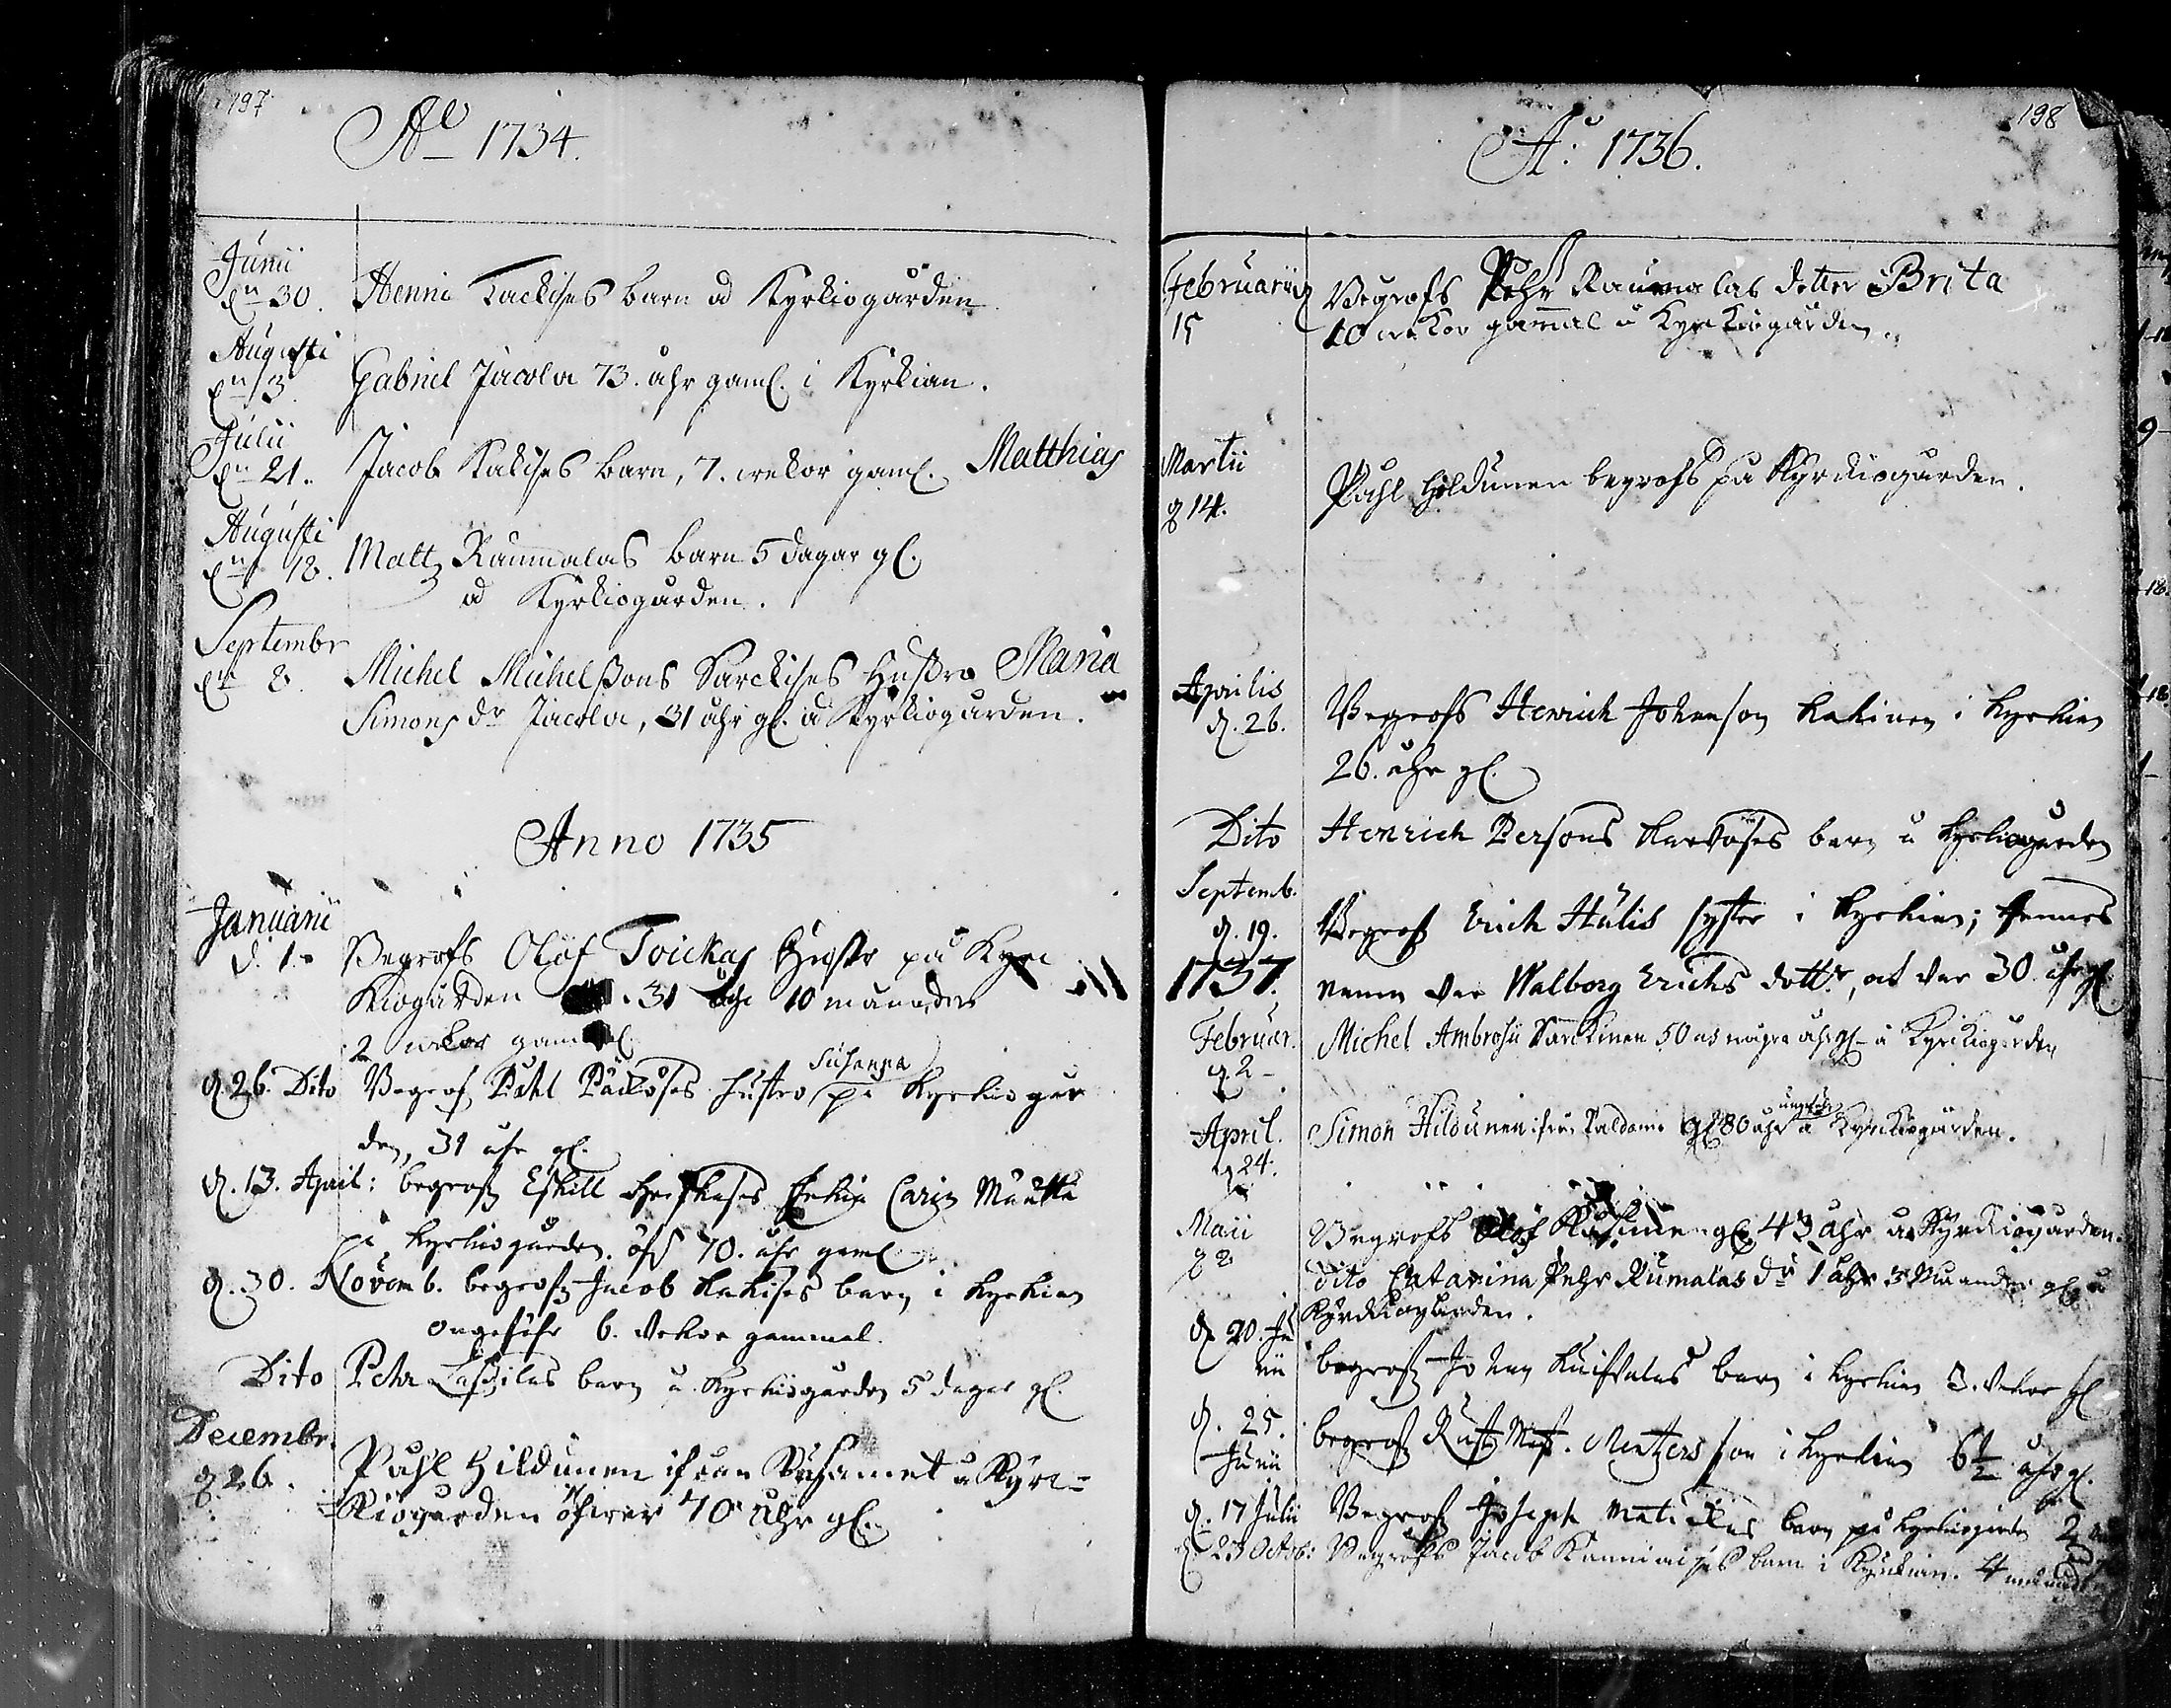 197
Ao 1734.
Junii
dn 30. Henric Tackises barn å Kyrkiogården
Augusti
dn 13 Gabriel Jacola 73. åhr gaml. i Kyrkian.
Julii
dn 21. Jacob Kakises barn, 7. wekor gaml. Matthias
Augusti
dn 18. Matz Raumalas barn 5 dagar gl.
å Kyrkiogården.
Septembr
dn 8. Michel Michelssons Sarckises hustro Maria
Simons dr Jacola, 31 åhr gl. å Kyrkiogården.
Anno 1735
Januarii
d. 1. Begrofs Olof Toickas Hustr på Kyrc
kiogården 31 åhr 10 månader
2 wekor gammal
d. 26. Dito Begrofs Påhl Päiköses hustro Susanna på Kyrkiogår
den, 31 åhr gl.
d. 13. April: begrofs Eskill enkia Carin
på Kyrkiogården. öfr 70. åhr gaml
d. 30. Novemb. begrofs Jacob Kakises barn i Kyrkian
ongefähr 6. vekor gammal.
Dito Pehr Lassilas barn å Kyrkiogården 5 dagar gl.
Decembr.
d. 26. Påhl Hildunen ifrån Kusamet å Kyrc-
kiogården öfwer 70 åhr gl.
198
Ao: 1736.
Februarii d
15 Begrofs Pehr Raumalas dotter Brita
10 wekor gammal å Kyrckiogården.
Martii
d 14. Påhl Hildunen begrofs på Kyrckiogården.
Aprilis
d. 26. Begrofs Henrich Johansson Kakinen i Kyrkian
26. åhr gl.
Dito Henrich Persons barn å Kyrkiogården
Septemb.
d. 19. Begrofs Erich Hulis syster i Kyrkian; hennes
1737. namn var Walborg Erichs dottr, at var 30. åhr gl
Februar.
d. 2 Michel Ambrosii Sarckinen 50 och någre åhr gl å Kyrckiogården
April.
d 24. Simon Hildunen ifrån Paldamo gl 80 åhr ungefär å Kyrckiogården.
Maii
d 2 Begrofs Olof gl 43 åhr å Kyrckiogården.
dito Catarina Pehr Rumalas dr 1 åhr 3 Månader gl å
Kyrckiogården.
d. 20. Ju
nii begrofs Johan barn i Kyrkian 3. vekor gl
d. 25.
Junii begrofs Mentzers son i Kyrkian 6 1/2 åhr gl.
d. 17 Julii Begrofs Joseph barn på Kyrkiogården 2
d. 23 Octob: Begrofs Jacob barn i Kyrckian. 4 månader